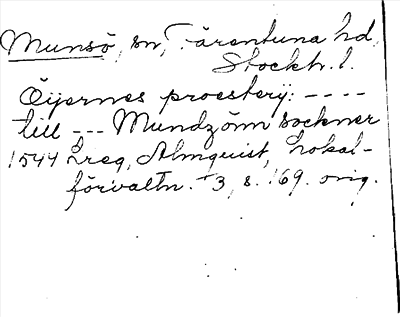 Munsö, sn, Färentuna hd,
Stockh. l.
Öijernes proesterij: ----
till --- Mundzönn sockner
1544 Lreg, Almquist, Lokal-
förvaltn. 3, s. 169. orig.